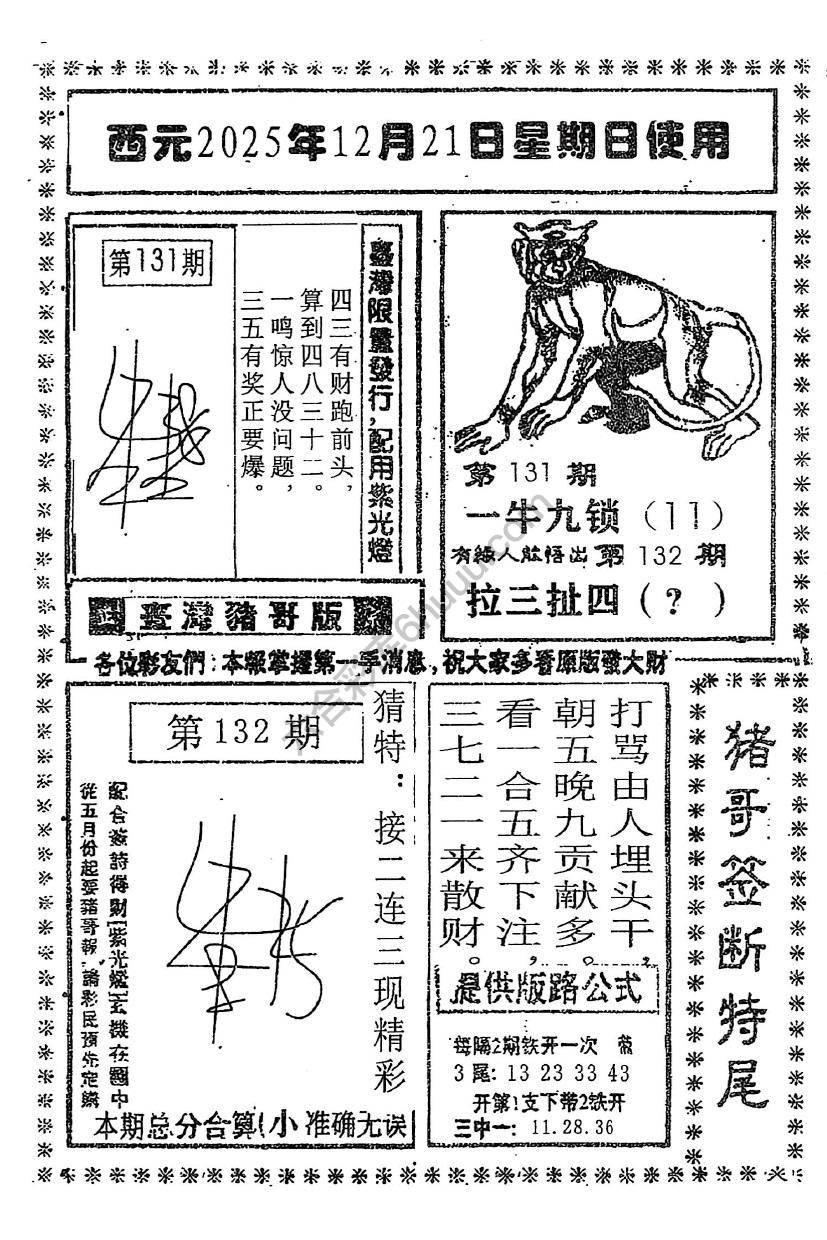 西元2025年12月21日星期日使用
第131期
臺灣限量發行,配用紫光燈
四三有财跑前头，
算到四八三十二。
一鸣惊人没问题，
三五有奖正要爆。
臺灣豬哥版
第 131 期
一牛九锁（11）
有緣人能悟出第 132 期
拉三扯四（？）
各位彩友們：本報掌握第一手消息，祝大家多看原版發大財
第 132 期
猜特：接二连三现精彩
配合簽詩得財[紫光燈]玄機在圖中
從五月份起要豬哥報，請彩民預先定購
本期总分合算(小 准确无误
打骂由人埋头干，
朝五晚九贡献多。
看一合五齐下注，
三七二一来散财。
提供版路公式
每隔2期铁开一次
3尾: 13 23 33 43
开第1支下带2铁开
三中一: 11.28.36
猪哥签断特尾
六合彩库6huuu.com